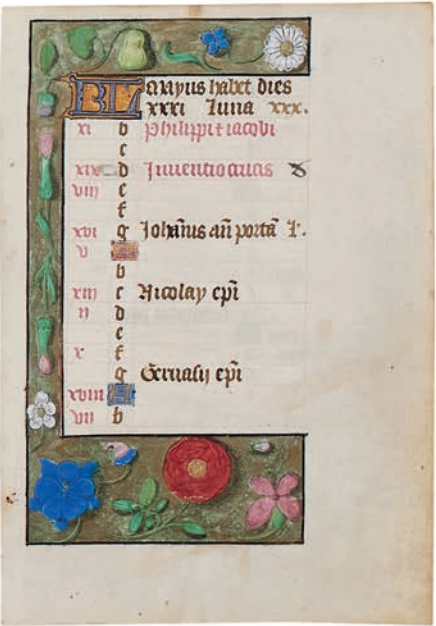 KL Mayus habet dies
xxxi Luna xxx.
xi b Philippi ⁊ iacobi
c
xix d Inuentio crucis
viii e
f
xvi g Johānis añ portā l.
v A
b
xiii c Nicolay ep̄i
ii d
e
x f
g Geruasij ep̄i
xviii A
vii b